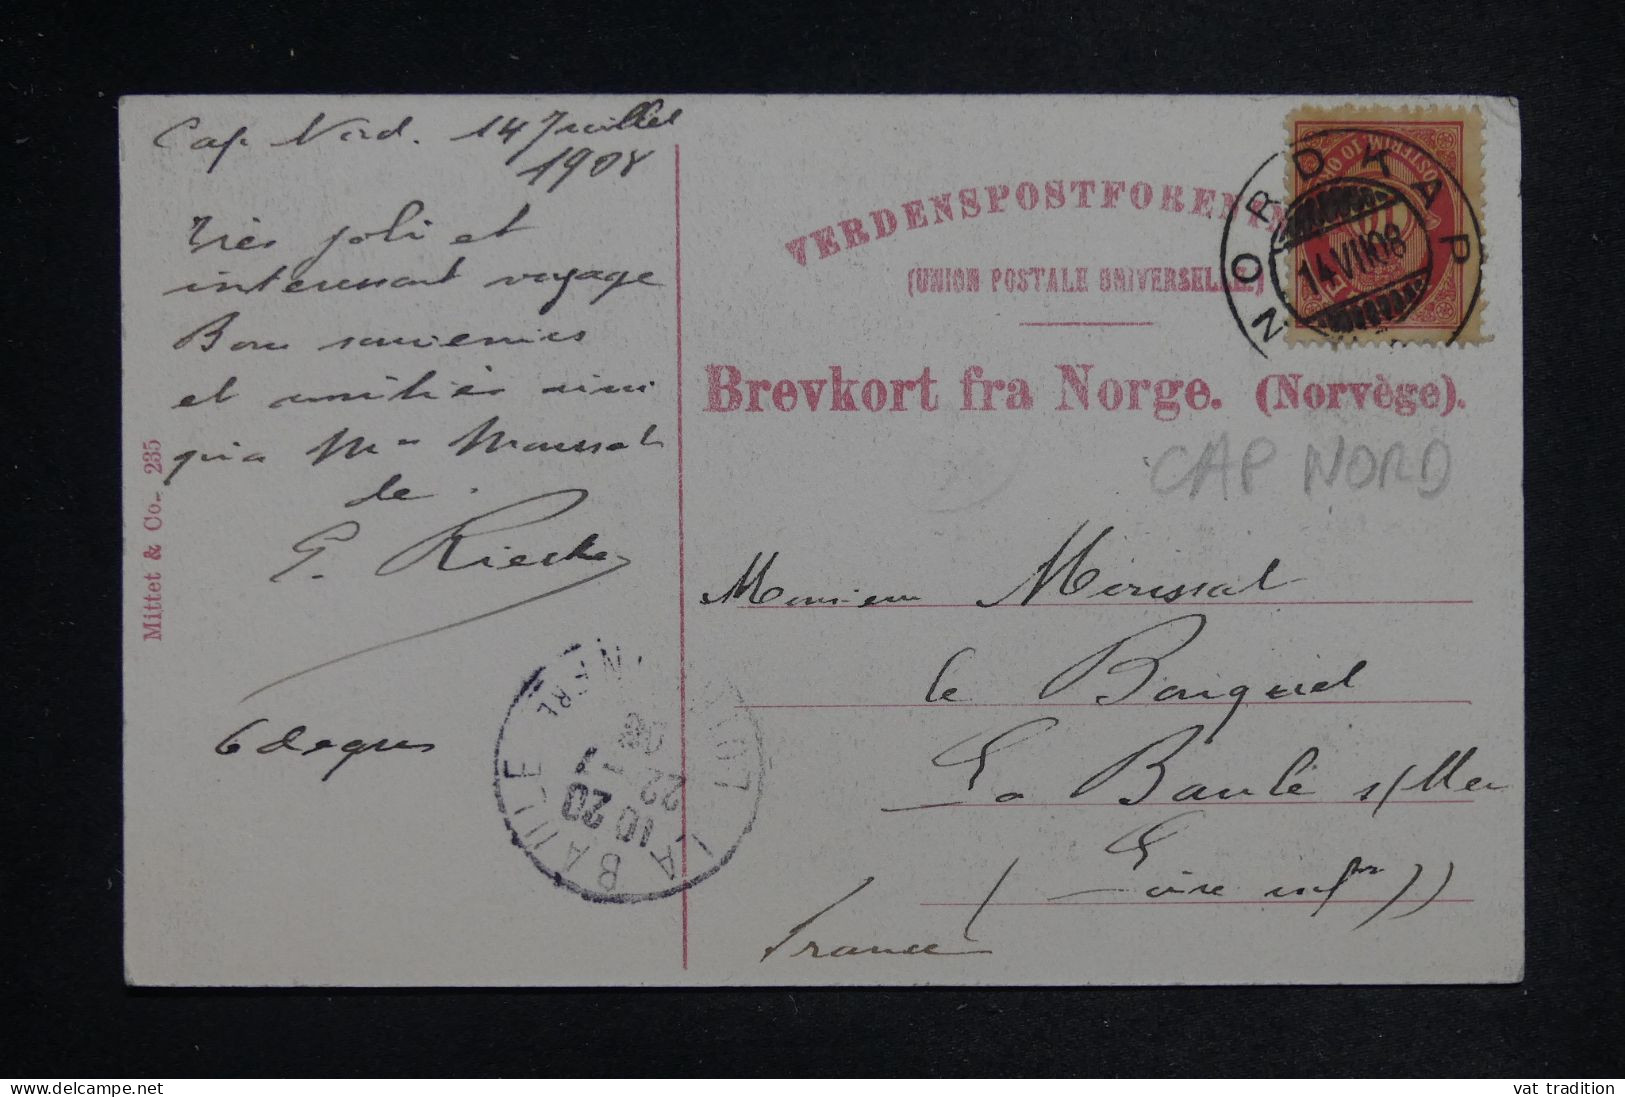 Cap Nord. 14 Juillet
1908
Très joli et
interessant voyage
Bons souvenirs
et amitiés ainsi
qu'a Mme Moussat
de
G.
6 degres
Mittet & Co. 235
VERDENSPOSTFORENIN
(UNION POSTALE UNIVERSELLE.)
Brevkort fra Norge. (Norvège).
NORDKAP
14 VII 08
CAP NORD
Monsieur Moussat
le
La Baule s/Mer
(Loire infre))
France
LA BAULE
10 20
22
08
vat tradition